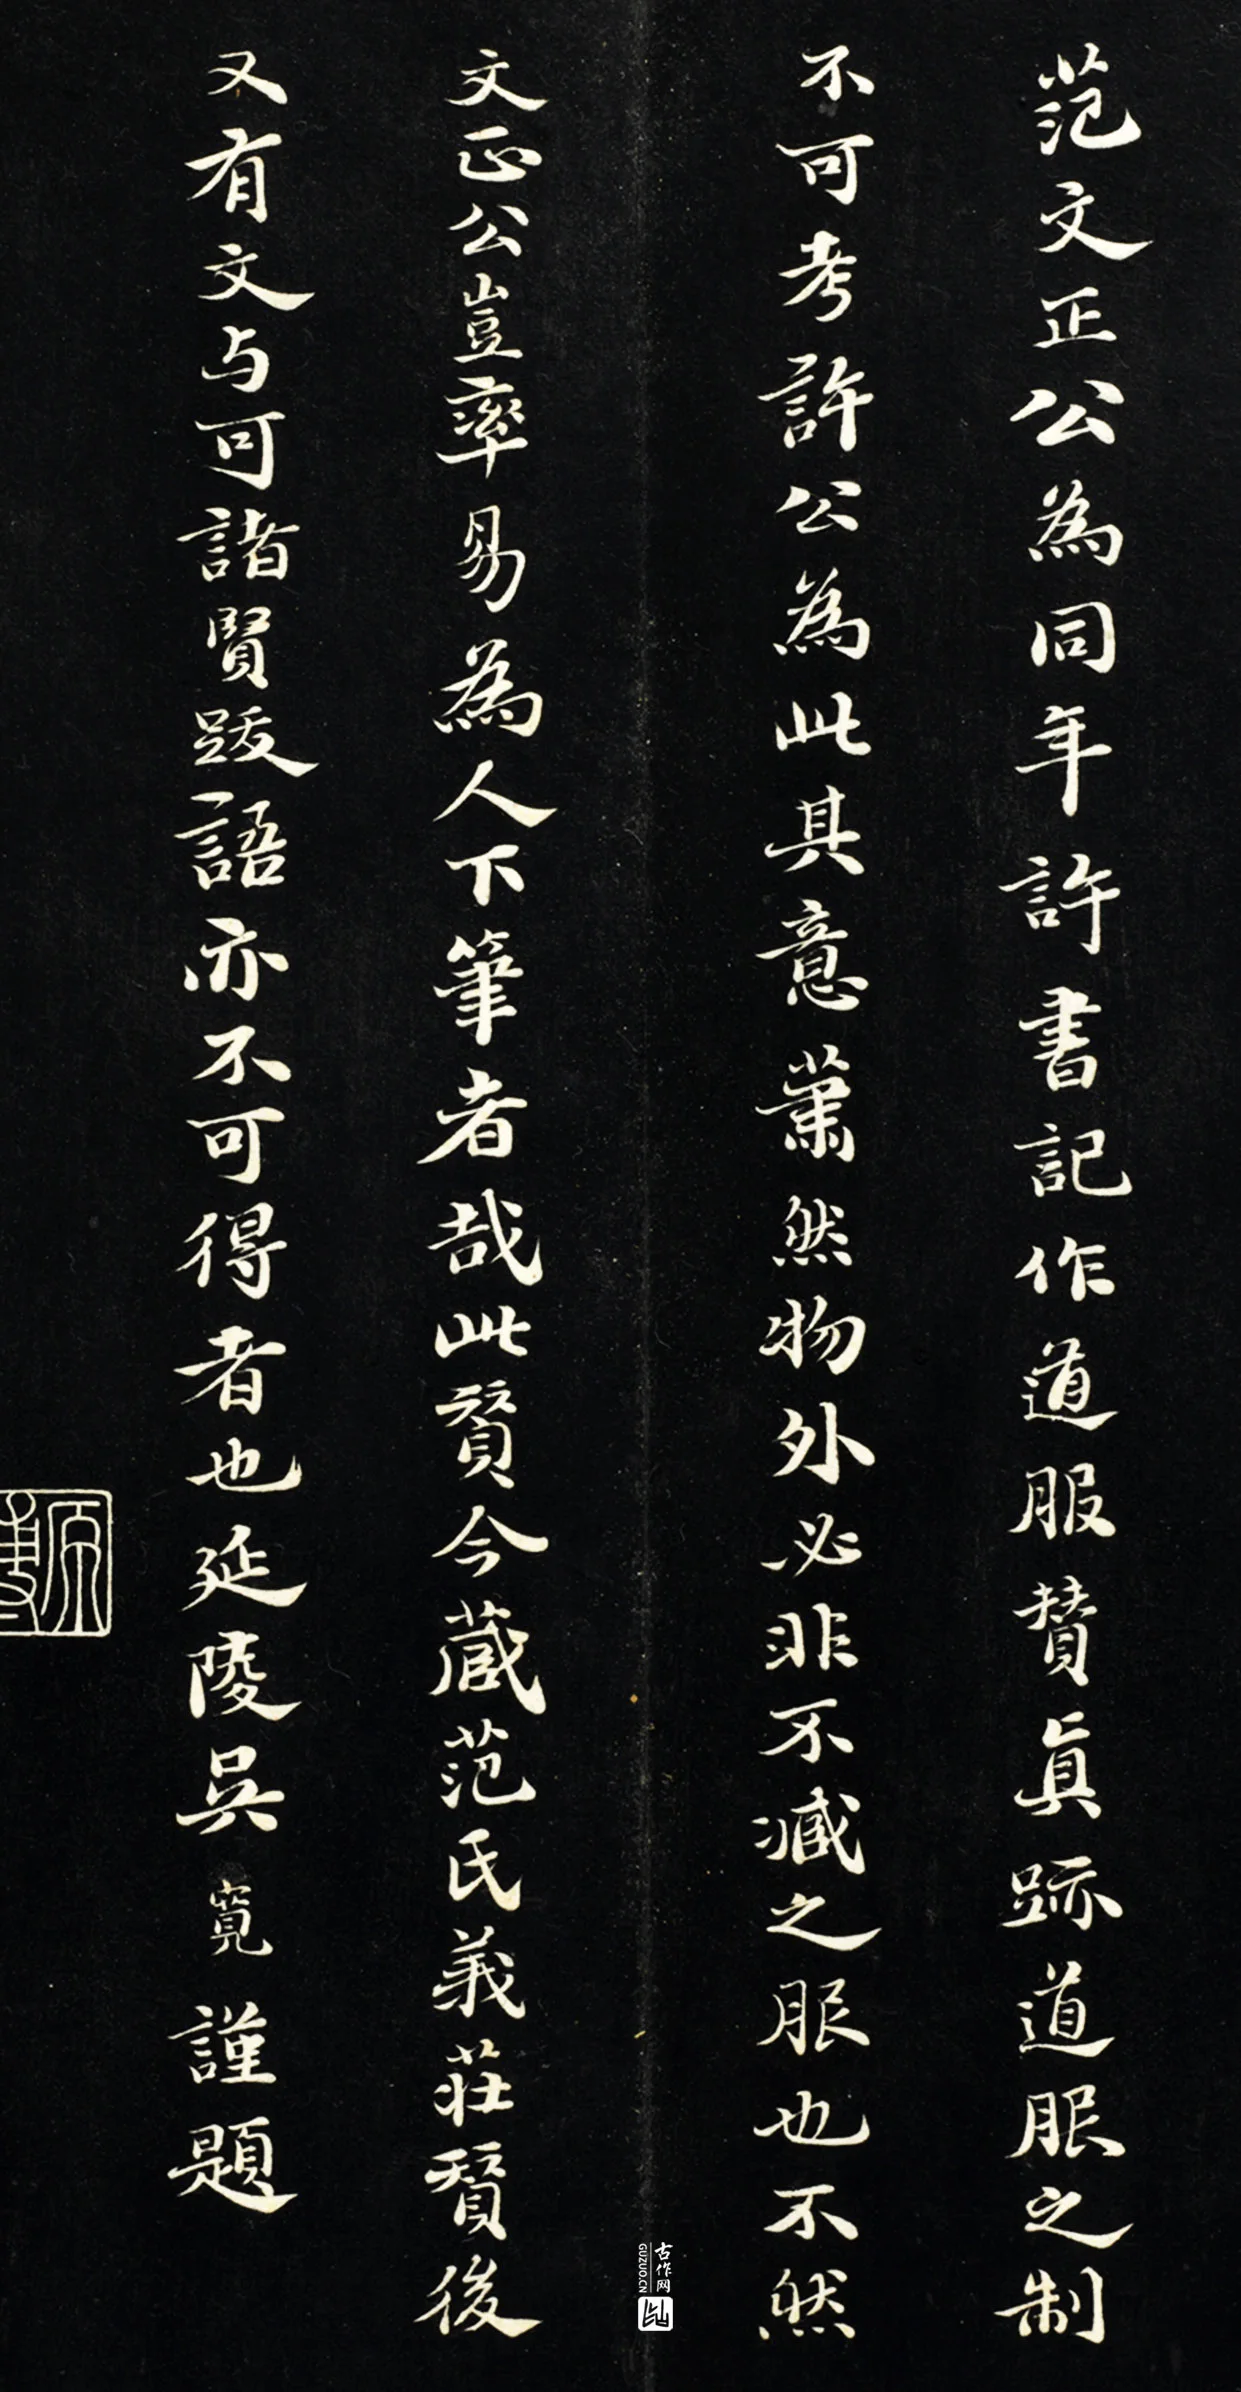 范文正公為同年許書記作道服賛真跡道服之制
不可考許公為此其意蕭然物外必非不臧之服也不然
文正公豈率易為人下筆者哉此賛今藏范氏義莊賛後
又有文与可諸賢跋語亦不可得者也延陵吳寬謹題
古作网
GUZUO.CN